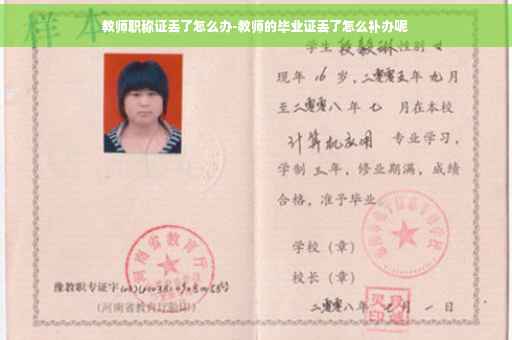 教师职称证丢了怎么办-教师的毕业证丢了怎么补办呢
样本
学生 段毅琳 性别 女
现年 16 岁，二零零五年 九 月
至二零零八 年 七 月在本校
计算机应用 专业学习，
学制 三 年，修业期满，成绩
合格，准予毕业
学校（章）
校长（章）
二零零八年 月 一 日
河南省教育厅
豫教职专证字
（河南省教育厅验印）